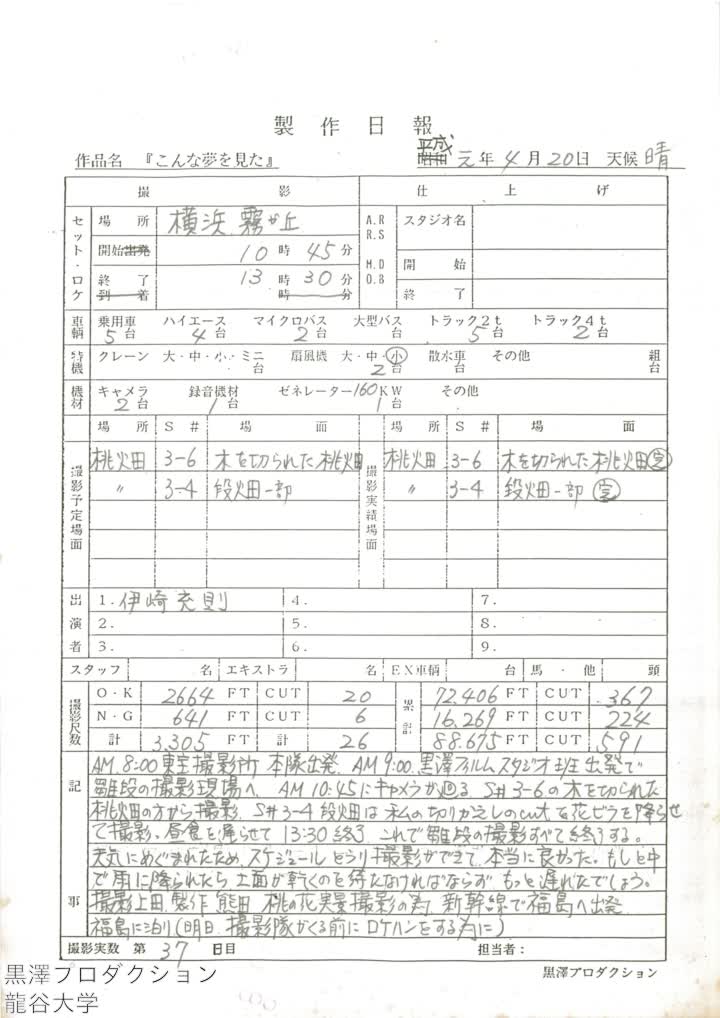 製作日報
作品名 『こんな夢を見た』 平成元年4月20日 天候 晴
撮影 仕上げ
セット・ロケ 場所 横浜 霧が丘 A.R R.S スタジオ名
開始出発 10時45分 M.D D.B 開始
終了 13時30分 終了
到着 時 分
車輌 乗用車 5台 ハイエース 4台 マイクロバス 2台 大型バス トラック2t 5台 トラック4t 2台
特機 クレーン 大・中・小・ミニ 台 扇風機 大・中・小 2台 散水車 台 その他 組 台
機材 キャメラ 2台 録音機材 1台 ゼネレーター160KW 1台 その他
場所 S# 場面 場所 S# 場面
撮影予定場面 桃畑 3-6 木を切られた桃畑 撮影実績場面 桃畑 3-6 木を切られた桃畑 完
〃 3-4 段畑一部 〃 3-4 段畑一部 完
出演者 1. 伊崎充則 4. 7.
2. 5. 8.
3. 6. 9.
スタッフ 名 エキストラ 名 EX車輌 台 馬・他 頭
撮影尺数 O・K 2664 FT CUT 20 累計 72.406 FT CUT 367
N・G 641 FT CUT 6 16.269 FT CUT 224
計 3.305 FT CUT 26 88.675 FT CUT 591
記事 AM 8:00 東宝撮影所 本隊出発、AM 9:00 黒澤フィルムスタジオ班出発で
雛段の撮影現場へ、AM 10:45にキャメラが廻る。S#3-6の木を切られた
桃畑の方から撮影、S#3-4段畑は私の切りかえしのcutを花ビラを降らせ
て撮影。昼食を遅らせて13:30終了 これで雛段の撮影すべて終了する。
天気にめぐまれたため、スケジュールどうり撮影ができて、本当に良かった。もしと中
で雨に降られたら土面が乾くのを待たなければならず もっと遅れたでしょう。
撮影上田、製作熊田 桃の花実景撮影の為 新幹線で福島へ出発
福島に泊り(明日、撮影隊がくる前にロケハンをする為に)
撮影実数 第37日目 担当者:
黒澤プロダクション
黒澤プロダクション
龍谷大学